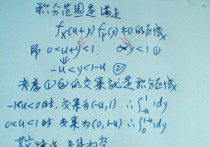 积分范围是满足
f_X(u+y) f_Y(y) ≠0的区域
即 0<u+y<1. 0<y<1 ①
-u<y<1-u ②
考虑①②的交集就是积分区域
-1<u<0时,交集为(-u,1) ∴∫_{-u}^{1} 1 dy
0<u<1时 交集为(0,1-u) ∴∫_{0}^{1-u} 1 dy